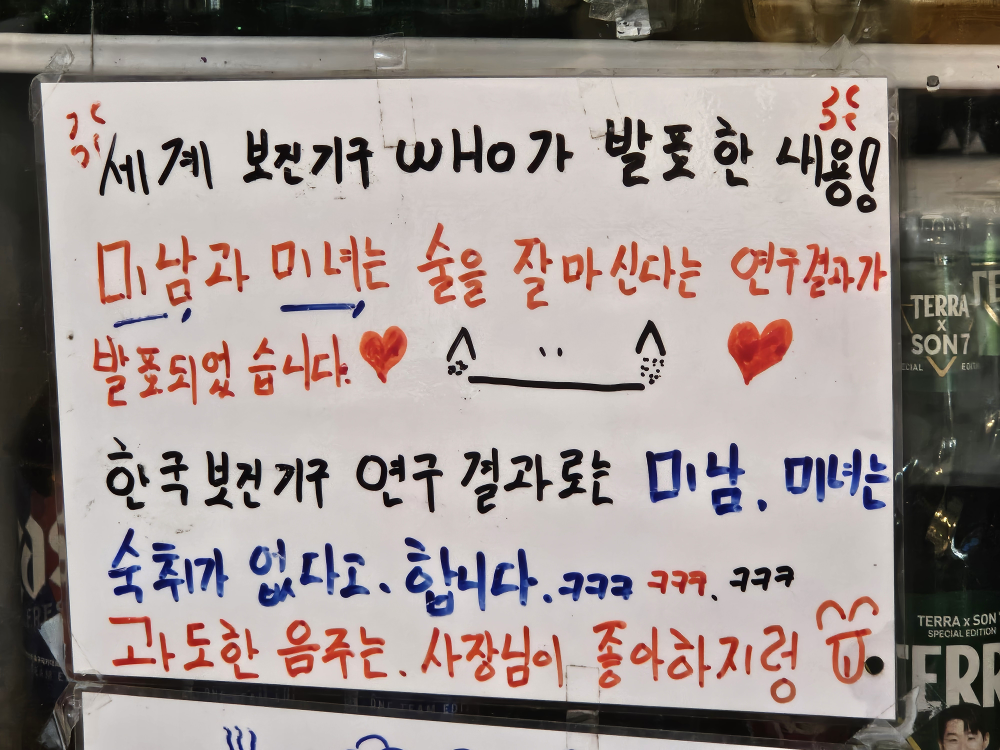 세계 보건기구 WHO가 발표한 내용!
미남과 미녀는 술을 잘마신다는 연구결과가
발표되었습니다.
한국보건기구 연구결과로는 미남. 미녀는
숙취가 없다고. 합니다. ㅋㅋㅋ ㅋㅋㅋ. ㅋㅋㅋ
과도한 음주는. 사장님이 좋아하지렁
TERRA
X
SON7
TERRA x SON
SPECIAL EDITION
TERR